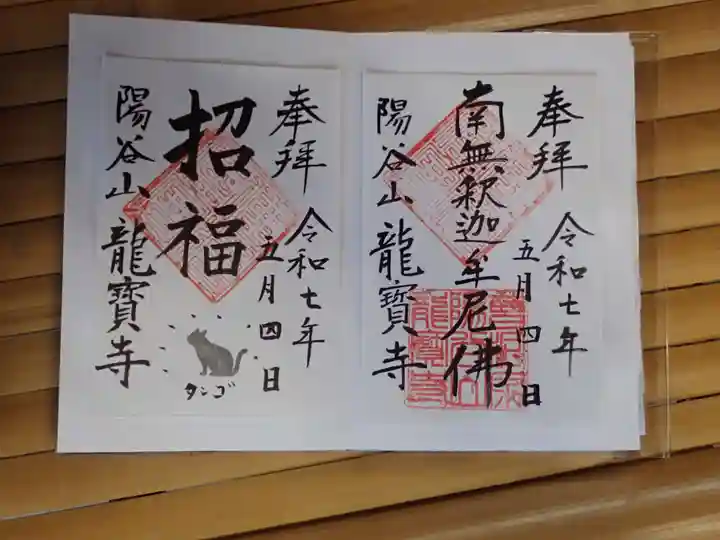 奉拝
令和七年
五月四日
南無釈迦牟尼佛
陽谷山
龍寶寺
奉拝
令和七年
五月四日
招福
タンゴ
陽谷山
龍寶寺